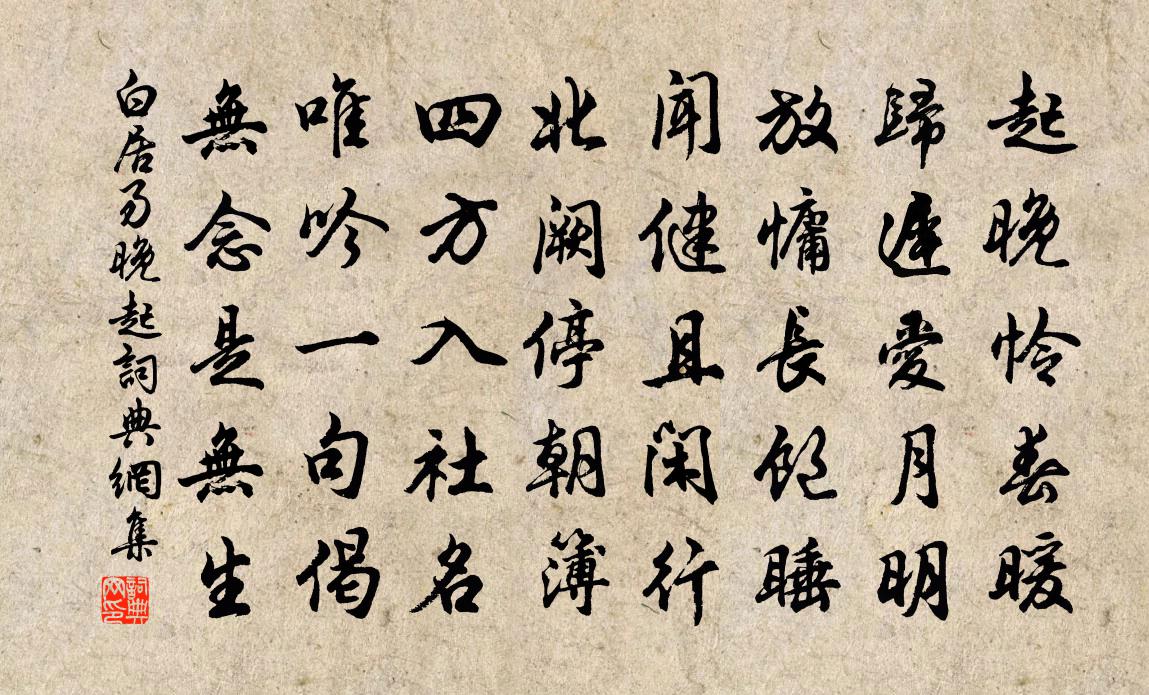 起晚怜春暖
歸遲愛月明
放慵長飽睡
聞健且閑行
北闕停朝簿
四方入社名
唯吟一句偈
無念是無生
白居易晚起詞典網集
詞典
网印